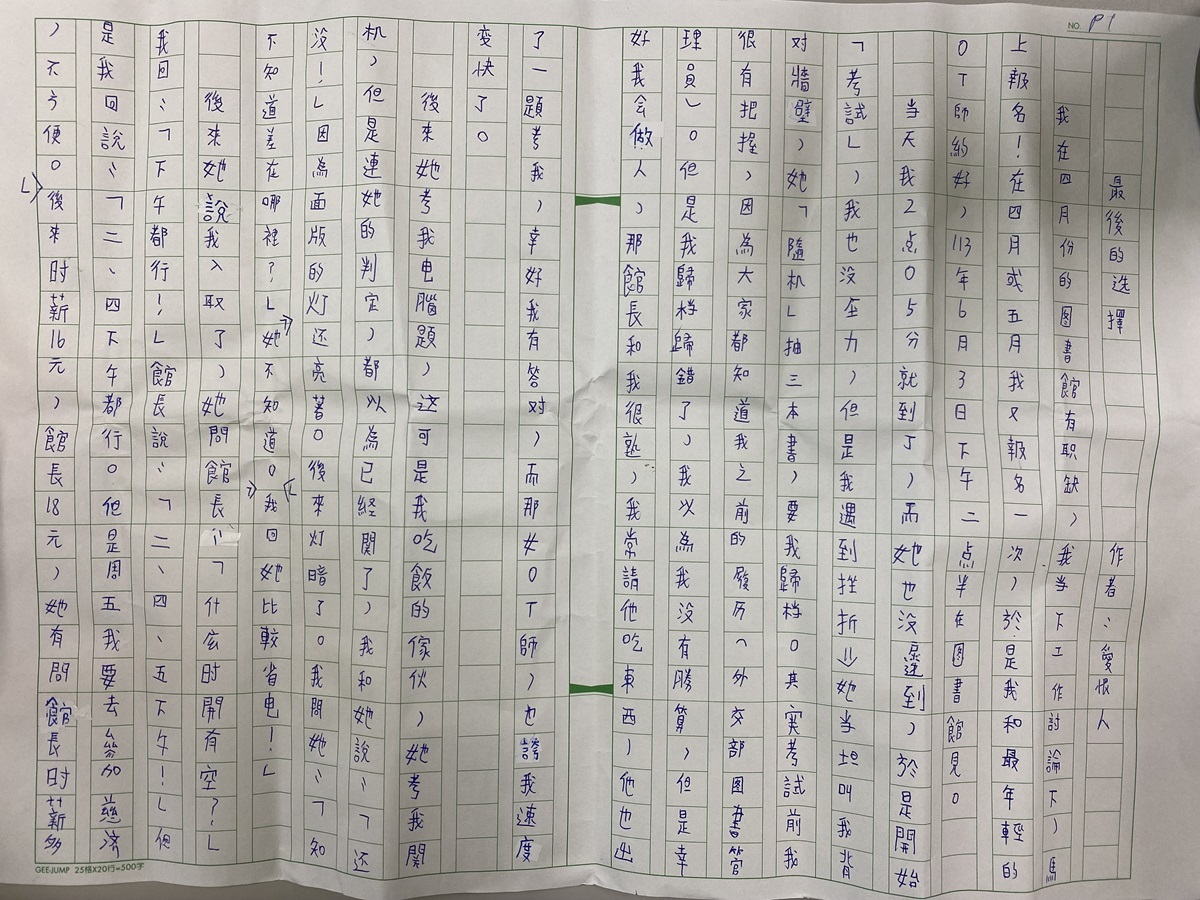 NO. P1
最後的选擇 作者：愛恨人
我在四月份的圖書館有职缺，我当下工作討論下，馬
上報名！在四月或五月我又報名一次，於是我和最年輕的
OT師約好，113年6月3日下午二点半在圖書館見。
当天我2点05分就到了，而她也沒遲到，於是開始
「考試」，我也没压力，但是我遇到挫折↓↓她当坦叫我背
对牆壁，她「隨机」抽三本書，要我歸档。其实考試前我
很有把握，因為大家都知道我之前的履历（外交部图書管
理員）。但是我歸档歸錯了，我以為我没有勝算，但是幸
好我会做人，那館長和我很熟，我常請他吃東西，他也出
了一題考我，幸好我有答对，而那女OT師，也誇我速度
变快了。
後來她考我电腦題，这可是我吃飯的傢伙，她考我關
机，但是連她的判定，都以為已経關了，我和她說：「还
沒！」因為面版的灯还亮著。後來灯暗了。我問她：「知
不知道差在哪裡？」她不知道。我回她比較省电！」
後來她說我入取了，她問館長：「什庅时開有空？」
我回：「下午都行！」館長說：「二、四、五下午！」但
是我回說：「二、四下午都行。但是周五我要去參加慈济
，不方便。」後來时薪16元，館長18元，她有問館長时薪多
GEE-JUMP 25格X20行=500字